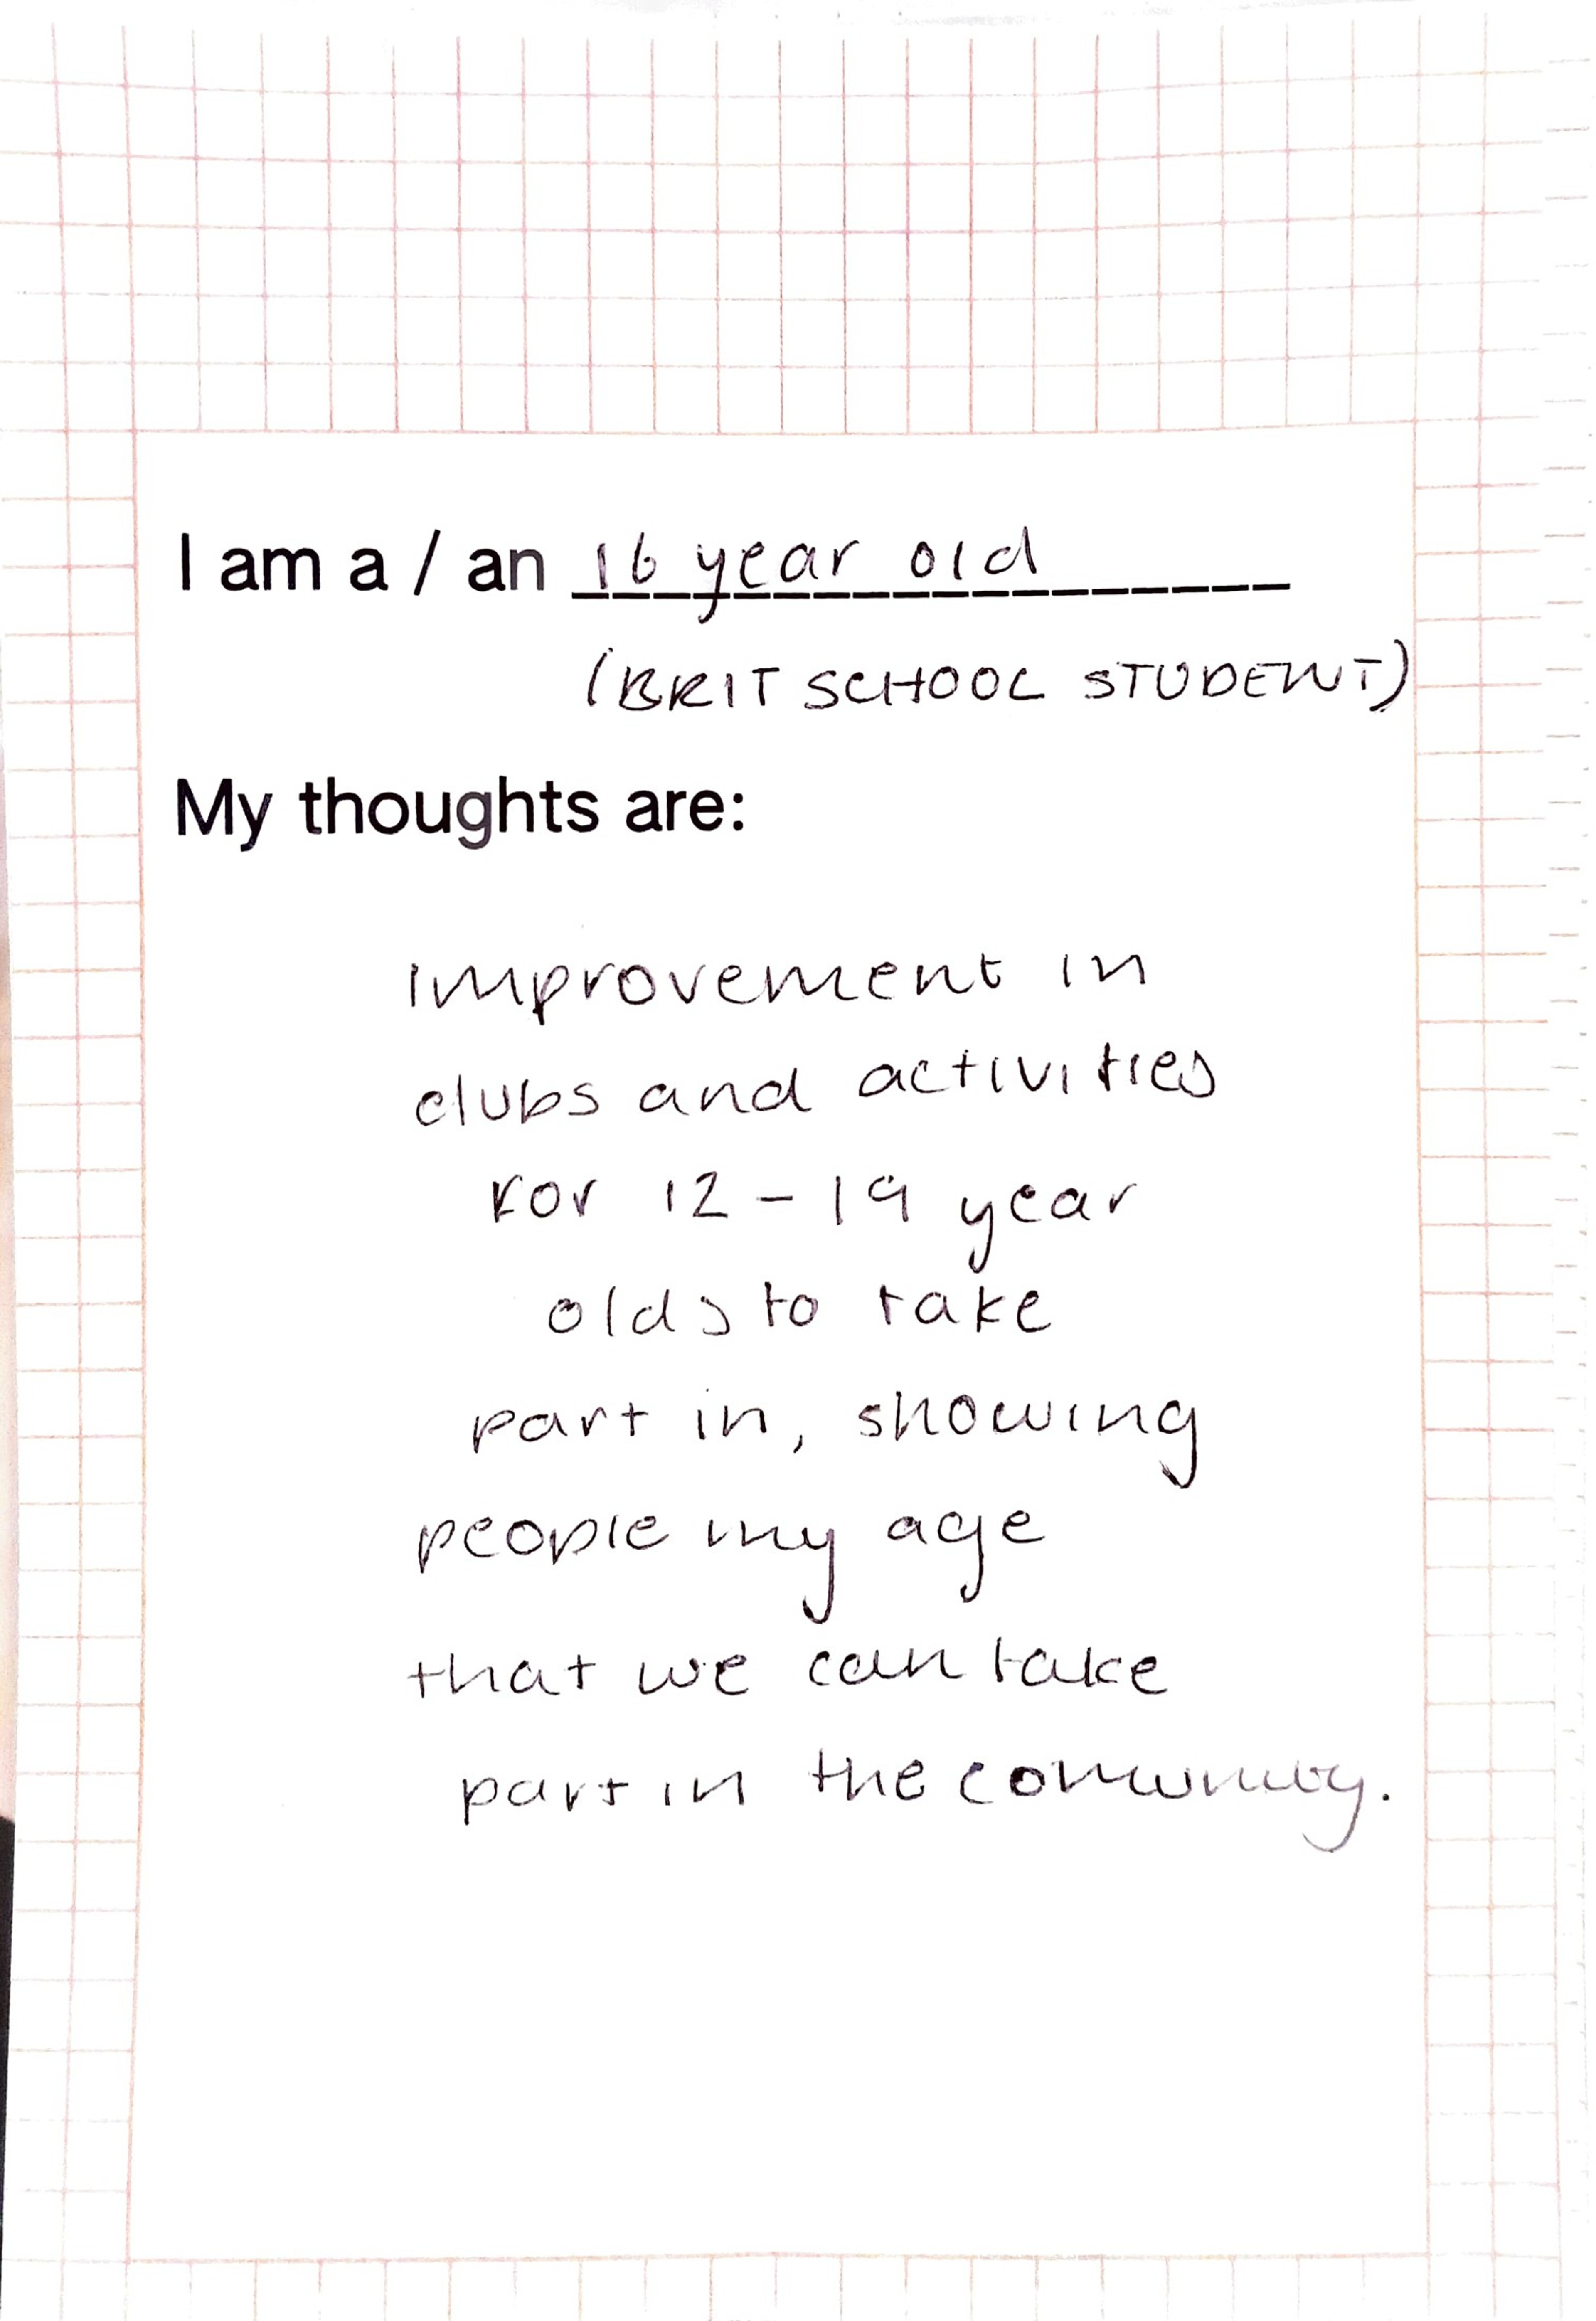 I am a / an 16 year old
(BRIT SCHOOL STUDENT)
My thoughts are:
improvement in
clubs and activities
for 12 - 19 year
olds to take
part in, showing
people my age
that we can take
part in the community.